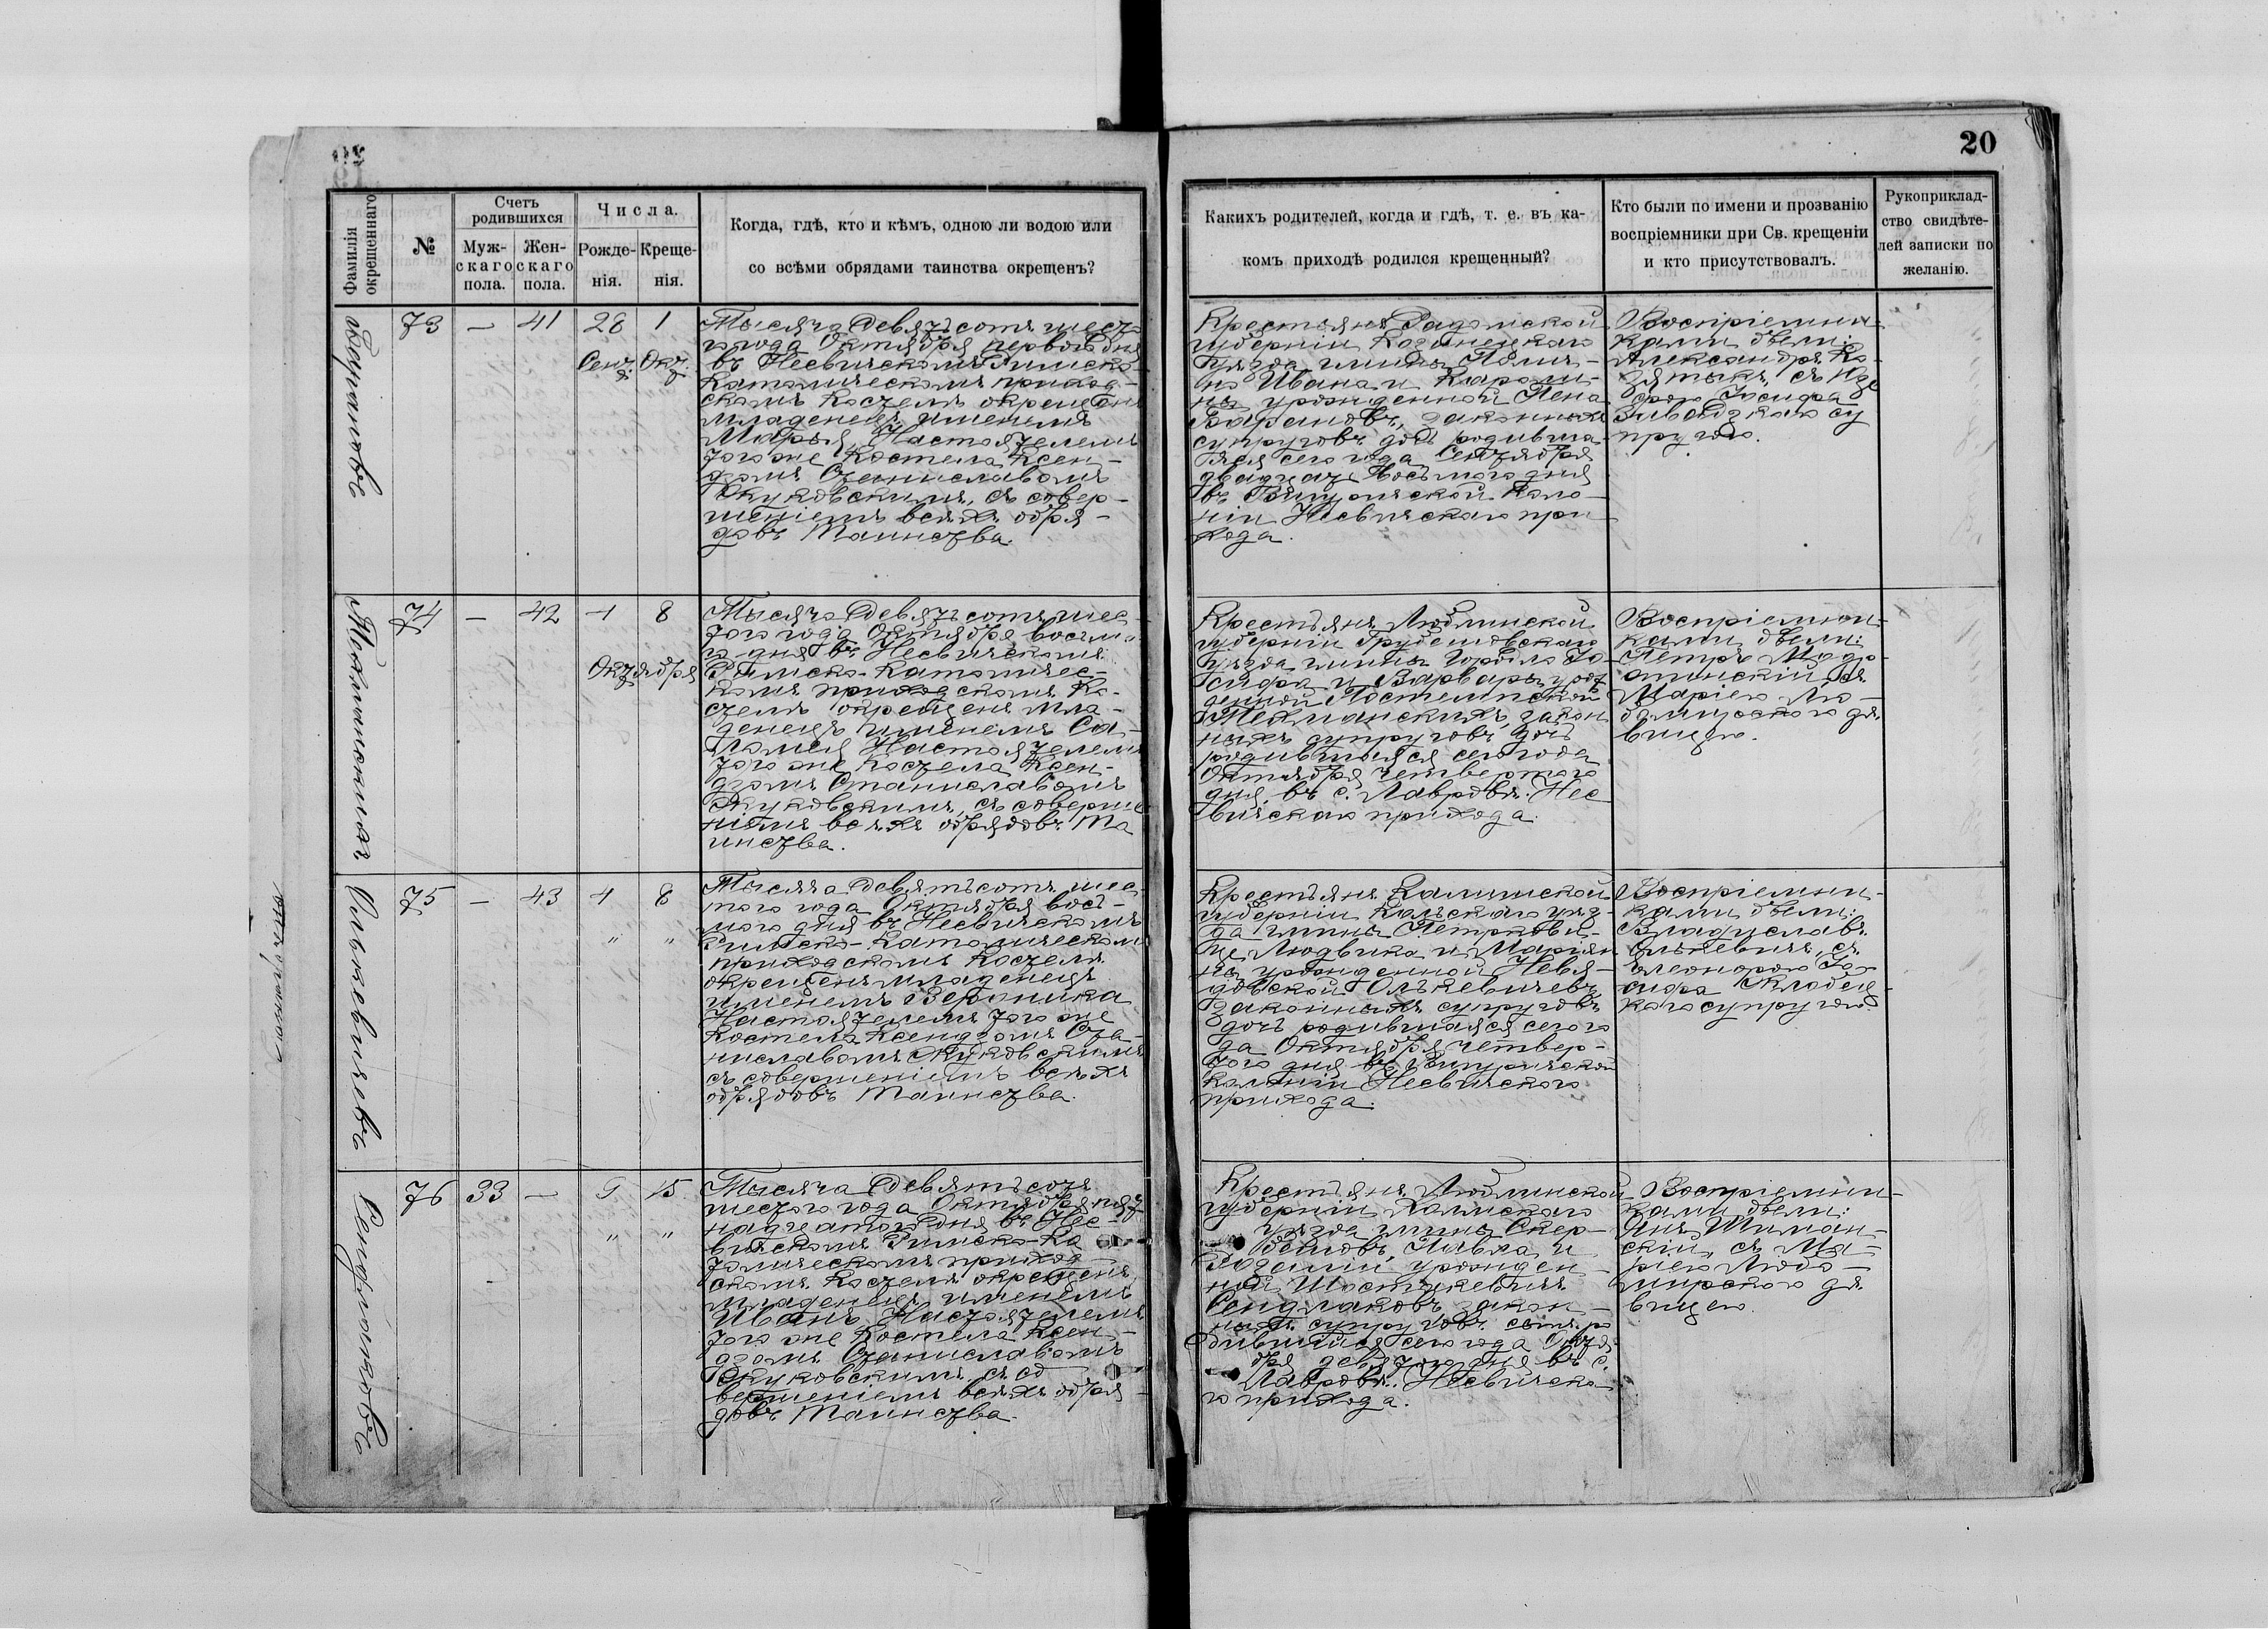 20
Фамилія окрещеннаго
№
Счетъ родившихся
Муж-
скаго
пола.
Жен-
скаго
пола.
Числа.
Рожде-
нія.
Креще-
нія.
Когда, гдѣ, кто и кѣмъ, одною ли водою или
со всѣми обрядами таинства окрещенъ?
Какихъ родителей, когда и гдѣ, т. е. въ ка-
комъ приходѣ родился крещенный?
Кто были по имени и прозванію
воспріемники при Св. крещеніи
и кто присутствовалъ.
Рукоприклад-
ство свидѣте-
лей записки по
желанію.
73 — 41 28 1
Сент. Окт.
Тысяча девятьсотъ шест
го года Октября перваго дня
въ Несвичскомъ Римско-
Католическомъ приход-
скомъ Костелѣ окрещенъ
младенецъ именемъ
Марья Настоятелемъ
того же Костела Ксен-
дзомъ Станиславомъ
Жуковскимъ, съ совер-
шеніемъ всѣхъ обря-
довъ Таинства.
Крестьянъ Радомской
губерніи Козинецкаго
уѣзда гмины
Ивана и Кароли-
ны урожденной
законныхъ
супруговъ дочь родивша-
яся сего года Сентября
двадцать восьмаго дня
въ коло-
ніи Несвичскаго при
хода.
Воспріемни-
ками были:
Александръ Ко-
съ
Іосифа
су
пругою.
74 — 42 4 8
Октября
Тысяча девятьсотъ шес-
того года Октября восьма
го дня въ Несвичскомъ
Римско-Католичес-
комъ приходскомъ Ко-
стелѣ окрещенъ мла-
денецъ именемъ Са-
ломея Настоятелемъ
того же Костела Ксен-
дзомъ Станиславомъ
Жуковскимъ, съ соверше
ніемъ всѣхъ обрядовъ Та
инства.
Крестьянъ Люблинской
губерніи Грубешовскаго
уѣзда гмины Городло Іо-
сифа и Варвары урож
денной
закон
ныхъ супруговъ дочь
родившаяся сего года
Октября четвертаго
дня въ с. Лавровѣ Нес
вичскаго прихода.
Воспріемни-
ками были:
Петръ
съ
Маріею Лю-
бомирскою дѣ-
вицею.
Олькевичевъ
75 — 43 4 8
" "
Тысяча девятьсотъ шес
того года Октября вось-
маго дня въ Несвичскомъ
Римско-Католическомъ
приходскомъ Костелѣ
окрещенъ младенецъ
именемъ Вероника
Настоятелемъ того же
Костела Ксендзомъ Ста-
ниславомъ Жуковскимъ
съ совершеніемъ всѣхъ
обрядовъ Таинства.
Крестьянъ Калишской
губерніи Кольскаго уѣз-
да гмины
Людвика и Маріан
ны урожденной
Олькевичевъ
законныхъ супруговъ
дочь родившаяся сего го
да Октября четвер-
того дня въ
колоніи Несвичскаго
прихода.
Воспріемни-
ками были:
Владиславъ
Олькевичъ, съ
Элеонорою Іо-
сифа
каго супругою.
Сендлаковъ
76 33 — 9 15
" "
Тысяча девятьсотъ
шестого года Октября пят
надцатаго дня въ Нес-
вичскомъ Римско-Ка
толическомъ приход
скомъ Костелѣ окрещенъ
младенецъ именемъ
Иванъ Настоятелемъ
того же Костела Ксен-
дзомъ Станиславомъ
Жуковскимъ съ со
вершеніемъ всѣхъ обря-
довъ Таинства.
Крестьянъ Люблинской
губерніи Холмскаго
уѣзда гмины
Павла и
урожден-
ной
Сендлаковъ закон-
ныхъ супруговъ сынъ ро
дившійся сего года Октя
бря девятаго дня въ с.
Лавровѣ Несвичска
го прихода.
Воспріемни-
ками были:
Янъ Шиман-
скій, съ Ма-
ріею Любо-
мирскою дѣ-
вицею.